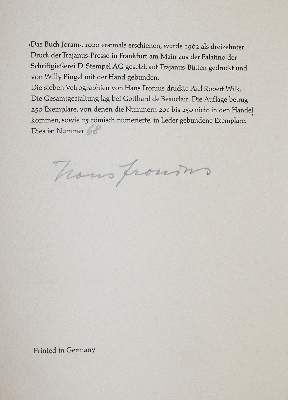 Das Buch Joram, 1920 erstmals erschienen, wurde 1962 als dreizehnter
Druck der Trajanus-Presse in Frankfurt am Main aus der Palatino der
Schriftgießerei D. Stempel AG gesetzt, auf Trajanus-Bütten gedruckt und
von Willy Pingel mit der Hand gebunden.
Die sieben Vetrographien von Hans Fronius druckte Paul Robert Wilk.
Die Gesamtgestaltung lag bei Gotthard de Beauclair. Die Auflage betrug
250 Exemplare, von denen die Nummern 201 bis 250 nicht in den Handel
kommen, sowie 25 römisch numerierte, in Leder gebundene Exemplare.
Dies ist Nummer 68
Hans Fronius
Printed in Germany